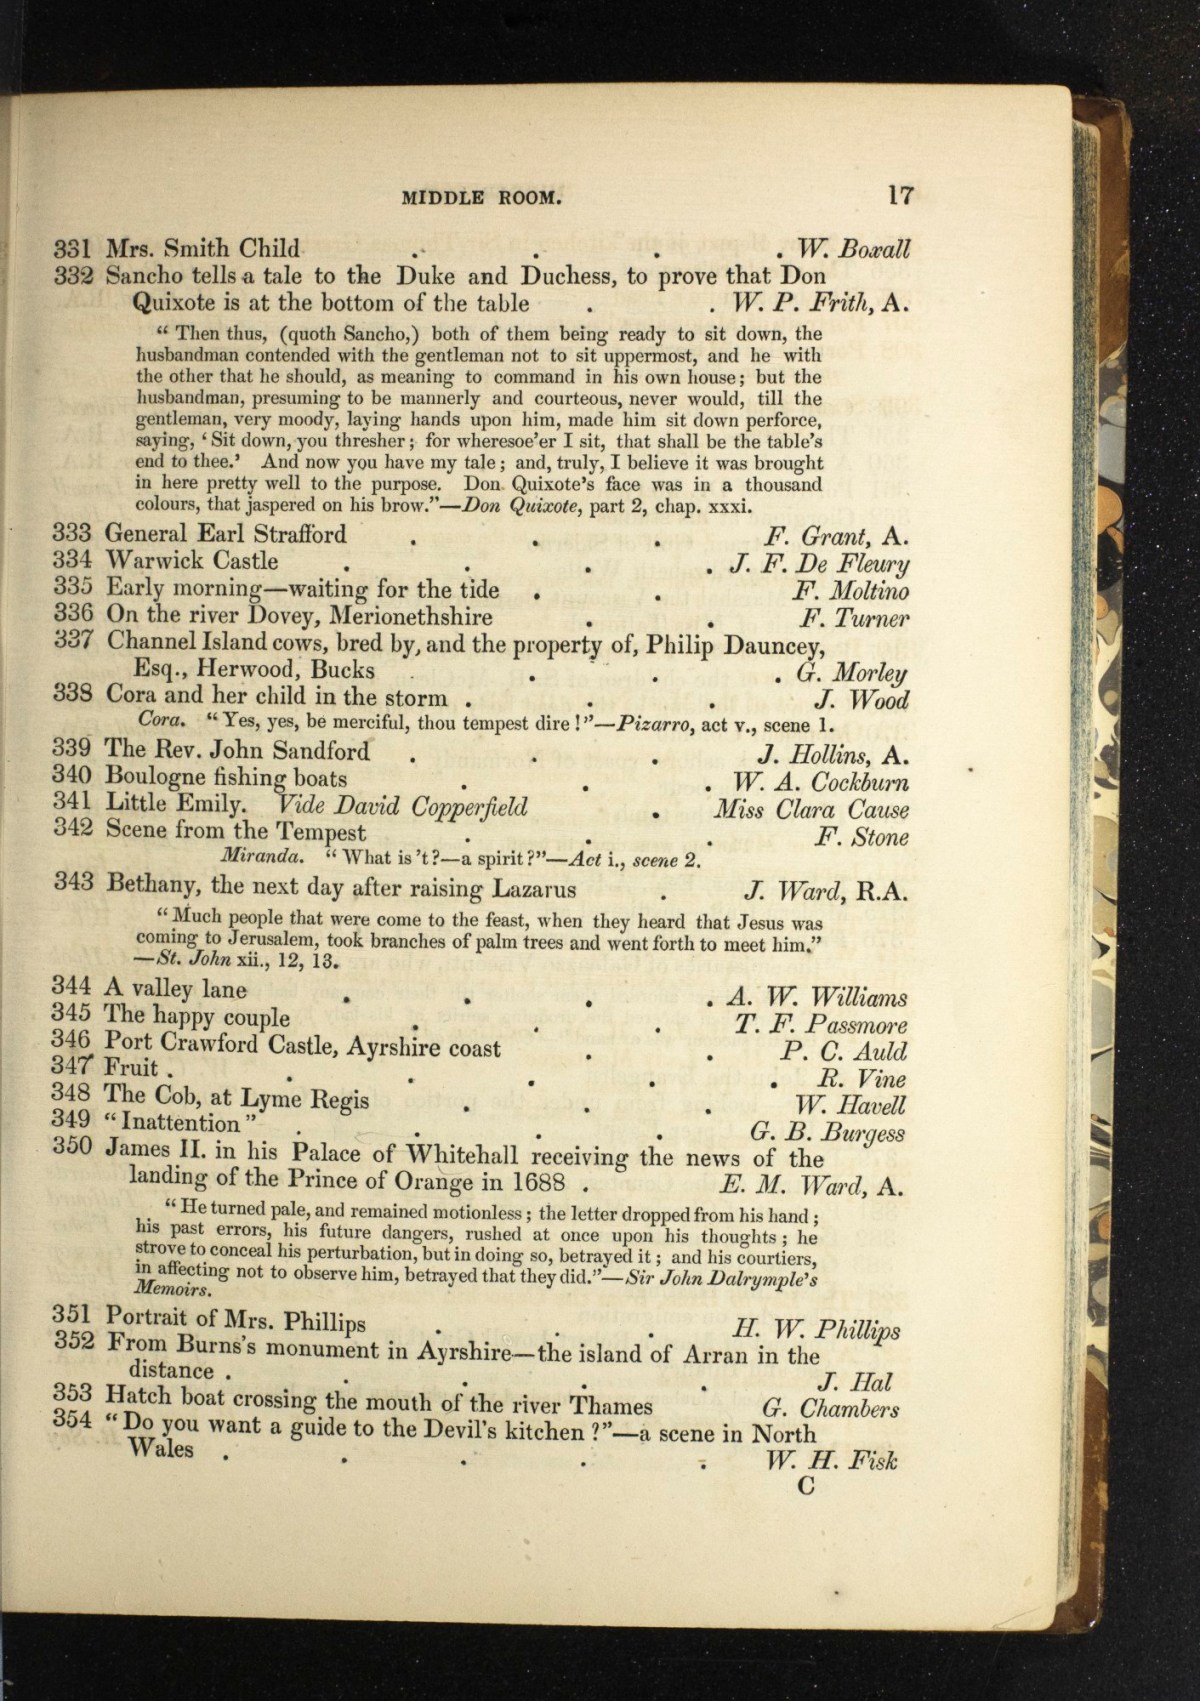 MIDDLE ROOM. 17
331 Mrs. Smith Child . . . . W. Boxall
332 Sancho tells a tale to the Duke and Duchess, to prove that Don
Quixote is at the bottom of the table . . W. P. Frith, A.
“ Then thus, (quoth Sancho,) both of them being ready to sit down, the
husbandman contended with the gentleman not to sit uppermost, and he with
the other that he should, as meaning to command in his own house; but the
husbandman, presuming to be mannerly and courteous, never would, till the
gentleman, very moody, laying hands upon him, made him sit down perforce,
saying, ‘ Sit down, you thresher; for wheresoe’er I sit, that shall be the table’s
end to thee.’ And now you have my tale; and, truly, I believe it was brought
in here pretty well to the purpose. Don Quixote’s face was in a thousand
colours, that jaspered on his brow.”—Don Quixote, part 2, chap. xxxi.
333 General Earl Strafford . . . F. Grant, A.
334 Warwick Castle . . . . J. F. De Fleury
335 Early morning—waiting for the tide . . F. Moltino
336 On the river Dovey, Merionethshire . . F. Turner
337 Channel Island cows, bred by, and the property of, Philip Dauncey,
Esq., Herwood, Bucks . . . . G. Morley
338 Cora and her child in the storm . . . J. Wood
Cora. “ Yes, yes, be merciful, thou tempest dire !”—Pizarro, act v., scene 1.
339 The Rev. John Sandford . . . J. Hollins, A.
340 Boulogne fishing boats . . . W. A. Cockburn
341 Little Emily. Vide David Copperfield . Miss Clara Cause
342 Scene from the Tempest . . . F. Stone
Miranda. “ What is ’t?—a spirit?”—Act i., scene 2.
343 Bethany, the next day after raising Lazarus . J. Ward, R.A.
“ Much people that were come to the feast, when they heard that Jesus was
coming to Jerusalem, took branches of palm trees and went forth to meet him.”
—St. John xii., 12, 13.
344 A valley lane . . . . A. W. Williams
345 The happy couple . . . T. F. Passmore
346 Port Crawford Castle, Ayrshire coast . . P. C. Auld
347 Fruit . . . . . . R. Vine
348 The Cob, at Lyme Regis . . . W. Havell
349 “ Inattention ” . . . . G. B. Burgess
350 James II. in his Palace of Whitehall receiving the news of the
landing of the Prince of Orange in 1688 . E. M. Ward, A.
“ He turned pale, and remained motionless; the letter dropped from his hand;
his past errors, his future dangers, rushed at once upon his thoughts; he
strove to conceal his perturbation, but in doing so, betrayed it; and his courtiers,
in affecting not to observe him, betrayed that they did.”—Sir John Dalrymple’s
Memoirs.
351 Portrait of Mrs. Phillips . . . H. W. Phillips
352 From Burns’s monument in Ayrshire—the island of Arran in the
distance . . . . . J. Hal
353 Hatch boat crossing the mouth of the river Thames G. Chambers
354 “ Do you want a guide to the Devil’s kitchen ?”—a scene in North
Wales . . . . . W. H. Fisk
C